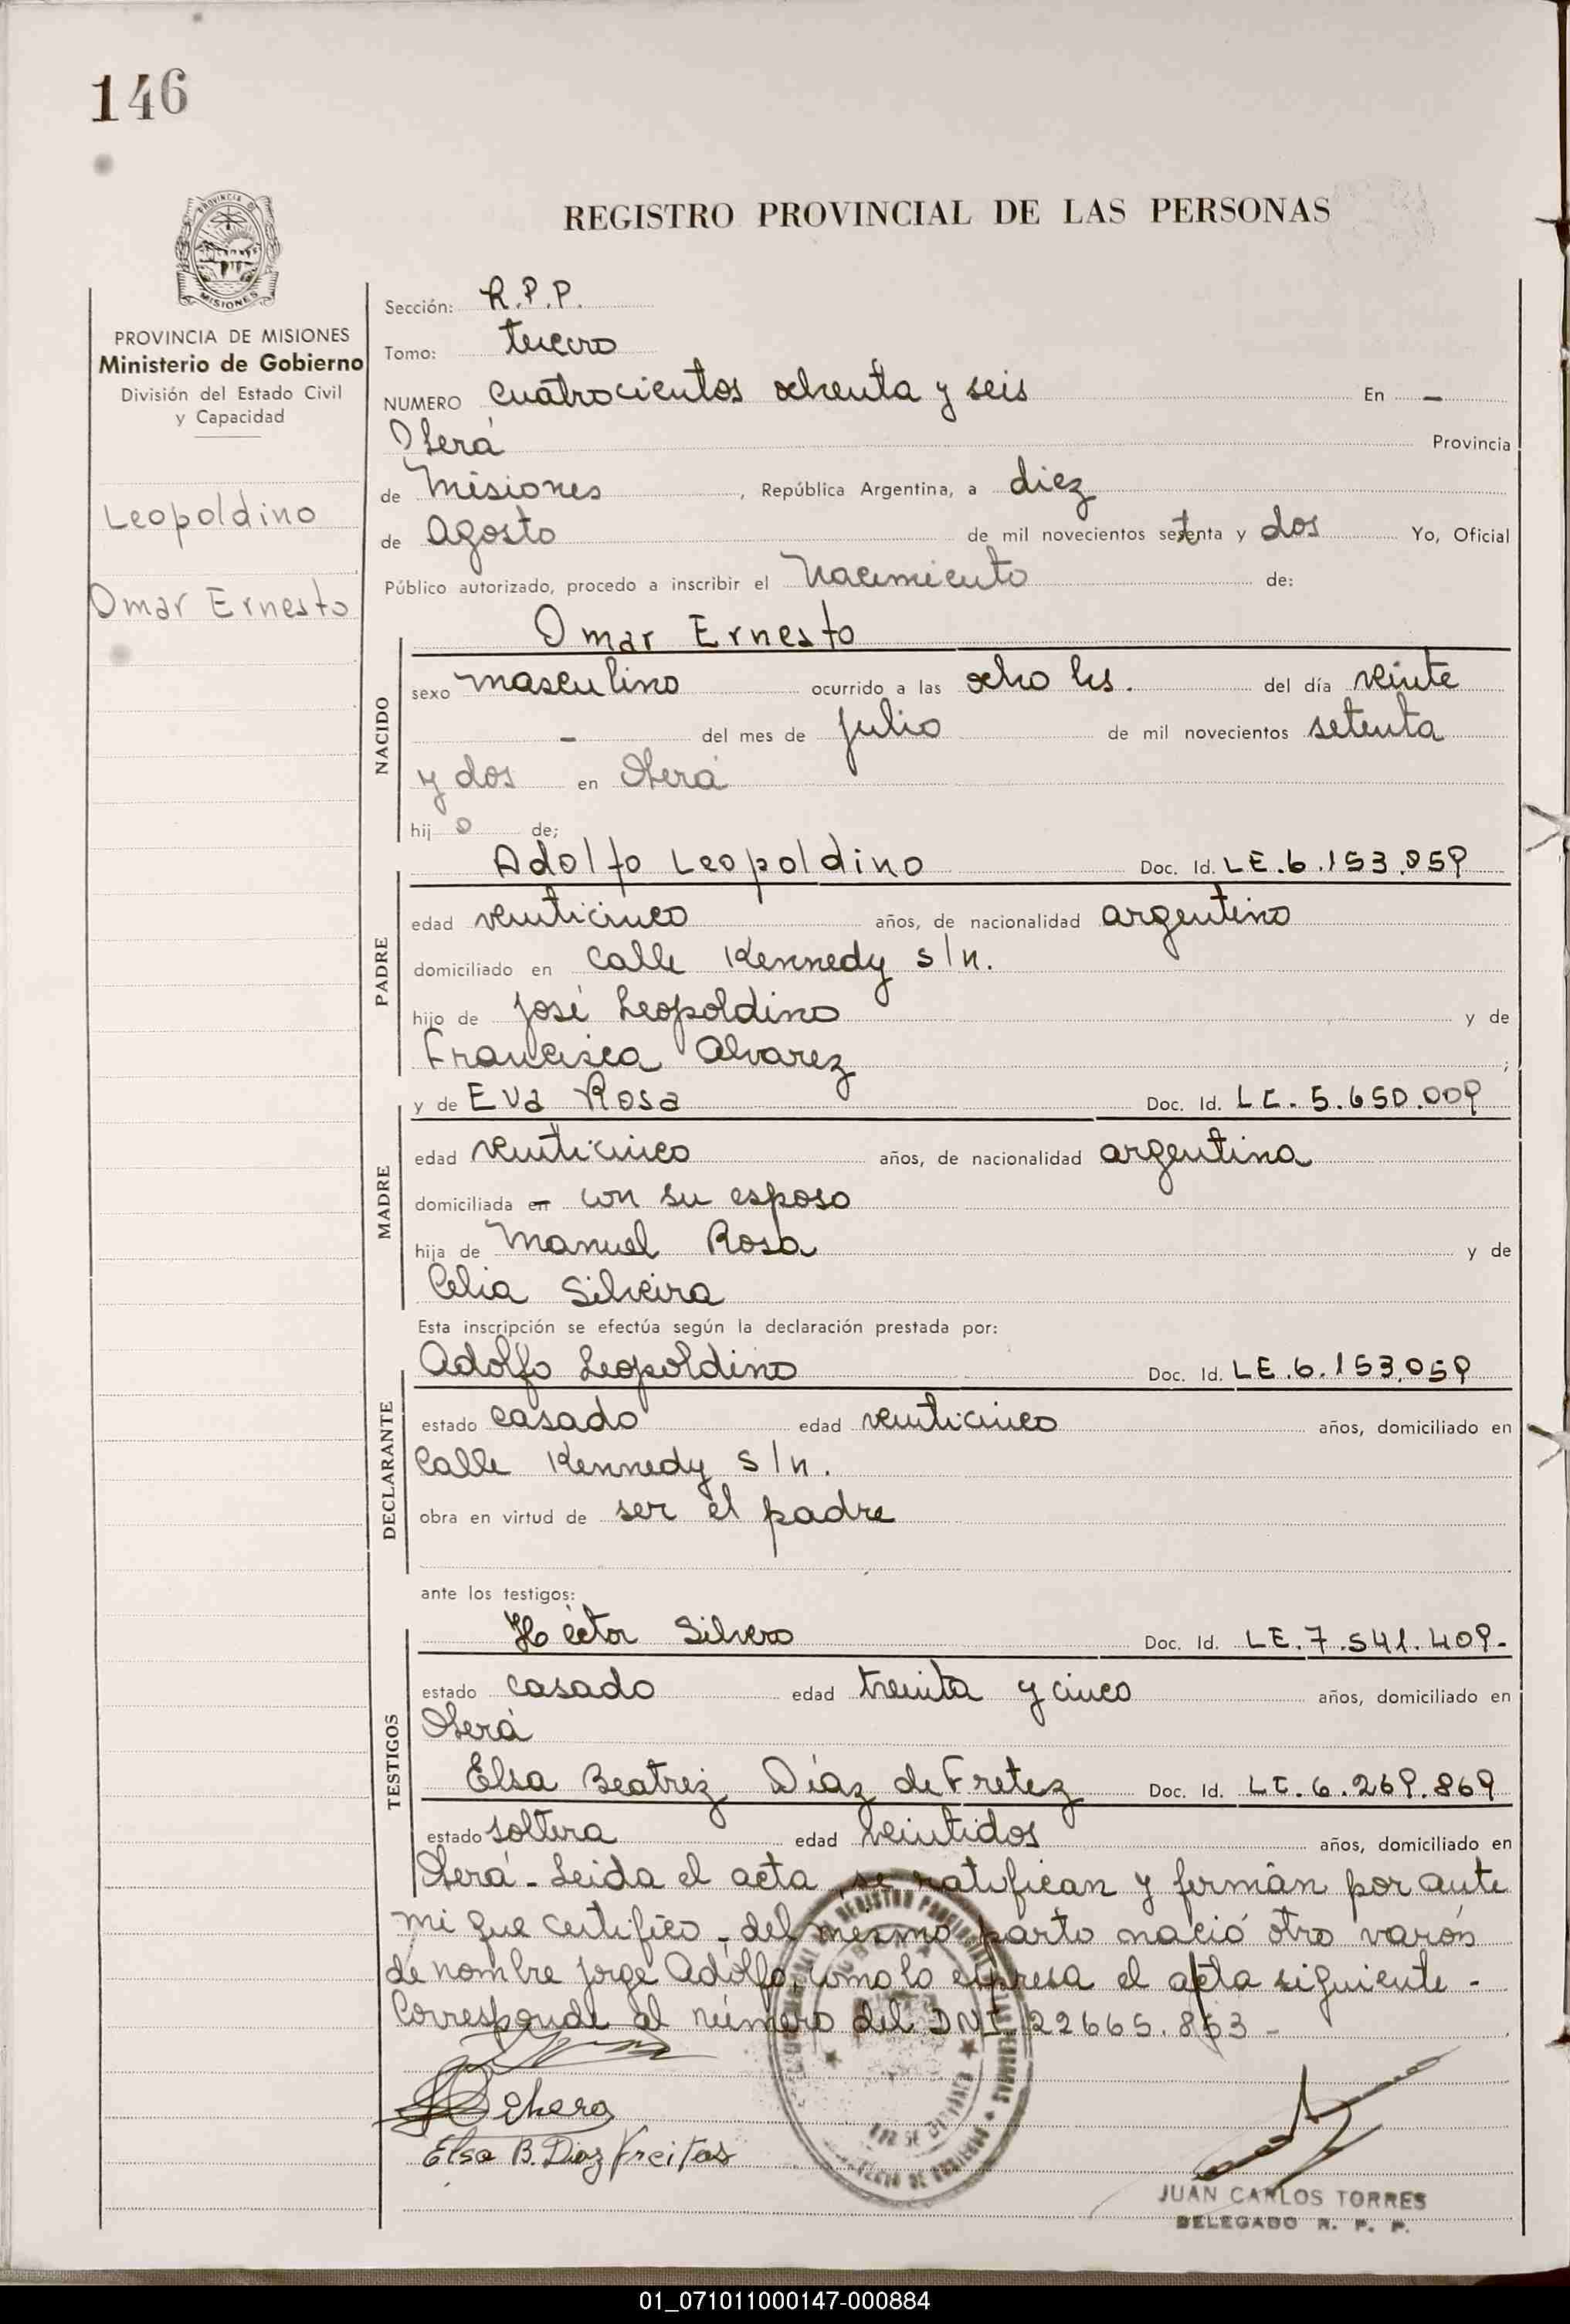 146
PROVINCIA DE
MISIONES
REGISTRO PROVINCIAL DE LAS PERSONAS
PROVINCIA DE MISIONES
Ministerio de Gobierno
División del Estado Civil
y Capacidad
Leopoldino
Omar Ernesto
Sección: R.P.P.
Tomo: tercero
NUMERO cuatrocientos ochenta y seis En -
Oberá Provincia
de Misiones, República Argentina, a diez
de Agosto de mil novecientos setenta y dos Yo, Oficial
Público autorizado, procedo a inscribir el Nacimiento de:
NACIDO
Omar Ernesto
sexo masculino ocurrido a las ocho hs. del día veinte
- del mes de julio de mil novecientos setenta
y dos en Oberá
hijo de;
PADRE
Adolfo Leopoldino Doc. Id. LE.6.153.059
edad veinticinco años, de nacionalidad argentino
domiciliado en calle Kennedy s/n.
hijo de José Leopoldino y de
Francisca Alvarez;
MADRE
y de Eva Rosa Doc. Id. LC.5.650.009
edad veinticinco años, de nacionalidad argentina
domiciliada en con su esposo
hija de Manuel Rosa y de
Celia Silveira
Esta inscripción se efectúa según la declaración prestada por:
DECLARANTE
Adolfo Leopoldino Doc. Id. LE.6.153.059
estado casado edad veinticinco años, domiciliado en
Calle Kennedy s/n.
obra en virtud de ser el padre
ante los testigos:
TESTIGOS
Héctor Silvero Doc. Id. LE.7.541.409-
estado casado edad treinta y cinco años, domiciliado en
Oberá
Elsa Beatriz Díaz de Fretez Doc. Id. LC.6.269.869
estado soltera edad veintidos años, domiciliado en
Oberá - Leida el acta, se ratifican y firman por ante
mi que certifico - del mesmo parto nació otro varón
de nombre Jorge Adolfo, como lo expresa el acta siguiente -
Corresponde al número del DNI 22665.863 -
Elsa B. Diaz Freitas
JUAN CARLOS TORRES
DELEGADO R. P. P.
01_071011000147-000884